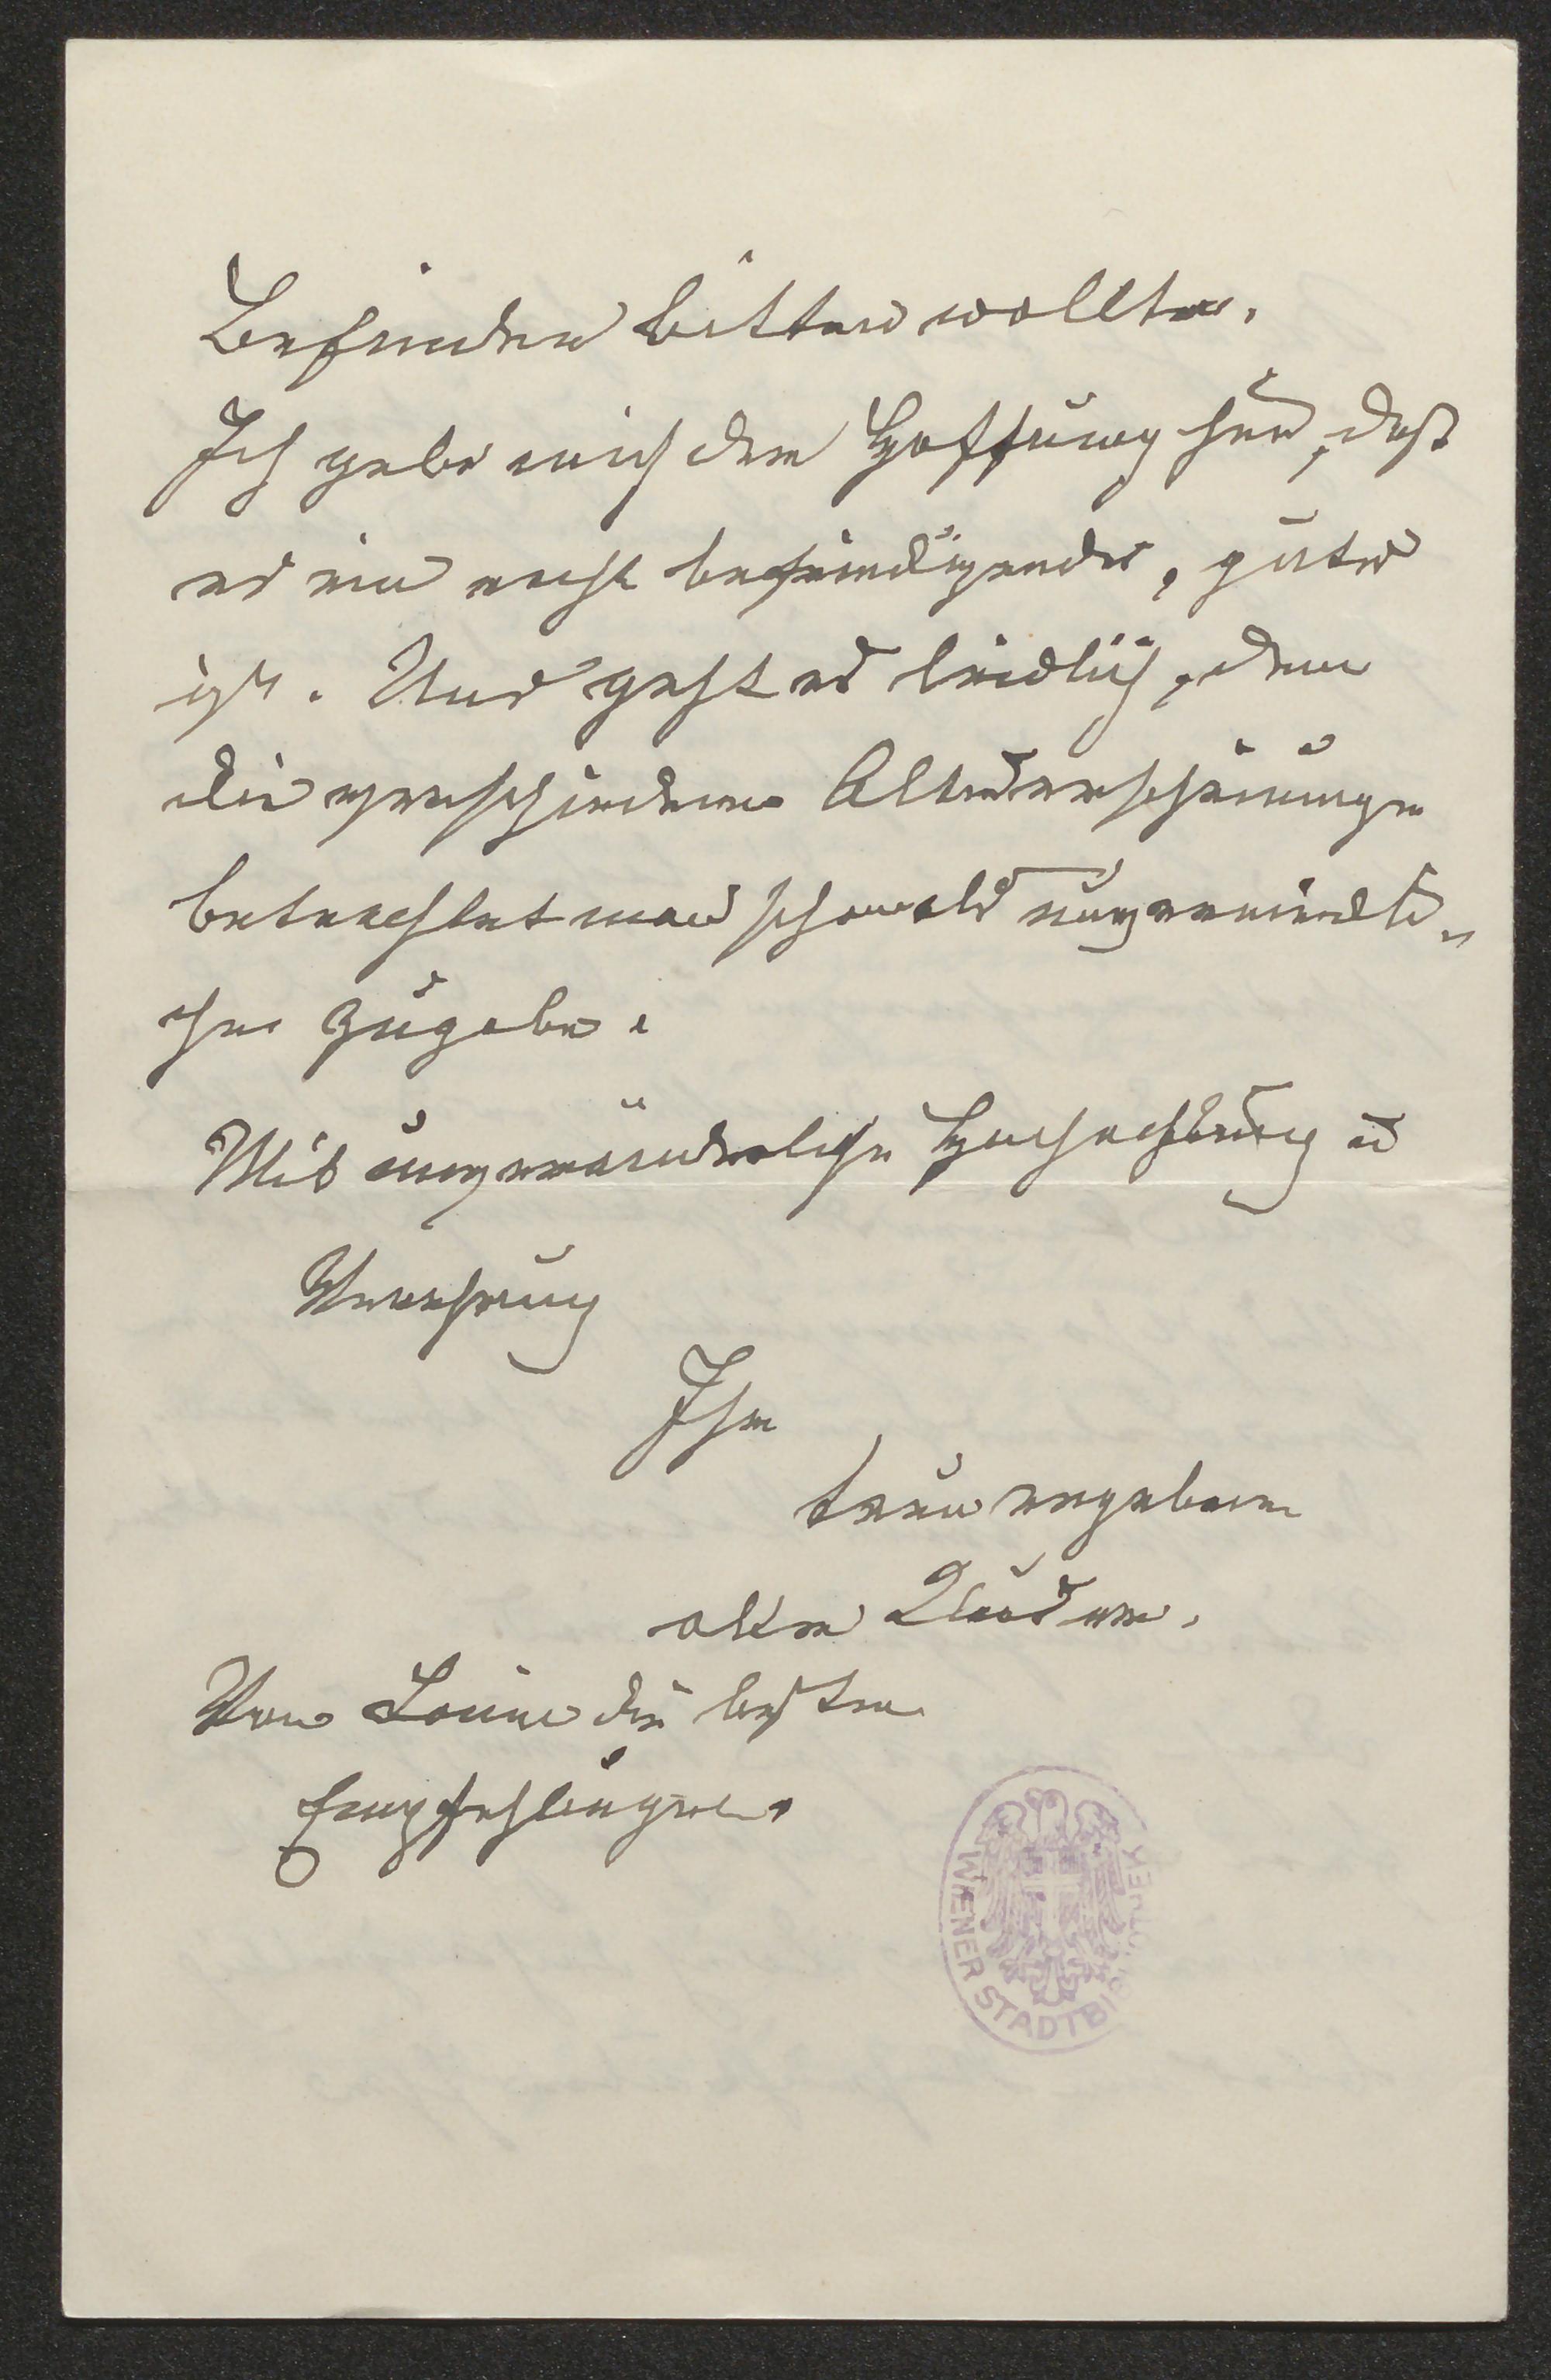 Befinden bitten wollte.
Ich gebe mich der Hoffnung hin, daß
es ein recht befriedigendes, gutes
ist. Uns geht es leidlich, denn
die verschiedenen Alterserscheinungen
betrachtet man schon als unvermeidli„
che Zugabe.
Mit unveränderlicher Hochachtung u
Verehrung
Ihr
treu ergebener
alter
Von Louise die besten
Empfehlungen.
WIENER STADTBIBLIOTHEK